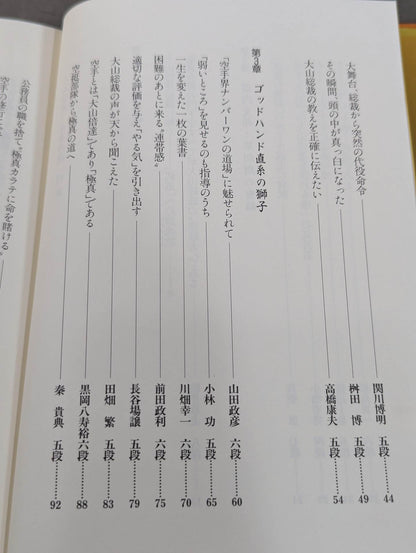 大舞台、総裁から突然の代役命令――関川博明 五段……44
その瞬間、頭の中が真っ白になった――桝田 博 五段……49
大山総裁の教えを正確に伝えたい――高橋康夫 五段……54
第3章 ゴッドハンド直系の獅子
「空手界ナンバーワンの道場」に魅せられて――山田政彦 六段……60
「弱いところ」を見せるのも指導のうち――小林 功 五段……65
一生を変えた一枚の葉書――川畑幸一 六段……70
困難のあとに来る“連帯感”――前田政利 六段……75
適切な評価を与え「やる気」を引き出す――長谷場譲 五段……79
大山総裁の声が天から聞こえた――田畑 繁 五段……83
空手とは、「大山倍達」であり「極真」である――黒岡八寿裕 六段……88
空挺部隊から極真の道へ――秦 貴典 五段……92
公務員の職を捨て“極真カラテに命を賭ける”